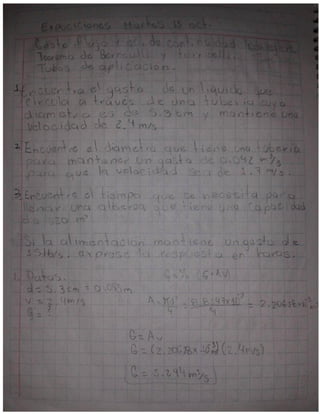 Exposiciones Martes 18 oct.
Gasto flujo, ecu. de continuidad
Teorema de Bernoulli y Torricelli.
Tubos de aplicacion.
1. Encuentra el gasto de un liquido que
circula a través de una tuberia cuyo
diametro es de 5.3 cm y mantiene una
velocidad de 2.4 m/s.
2. Encuentre el diametro que tiene una tuberia
para mantener un gasto de 0.042 m³/s
para que la velocidad sea de 1.7 m/s.
3. Encuentre el tiempo que se necesita para
llenar una alberca que tiene una capacidad
de 520 m³
Si la alimentación mantiene un gasto de
15 lt/s. exprese la respuesta en horas.
1. Datos.
d = 5.3 cm = 0.053 m
v = 2.4 m/s
g = ?
G = Av
G = (2.4 m/s)
G = 5.294 m³/s